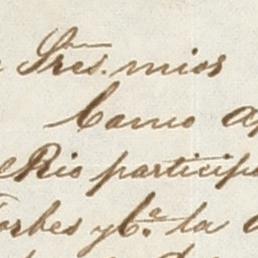 Sres. mios
Como
Rio particip
Forbes y Ca. la